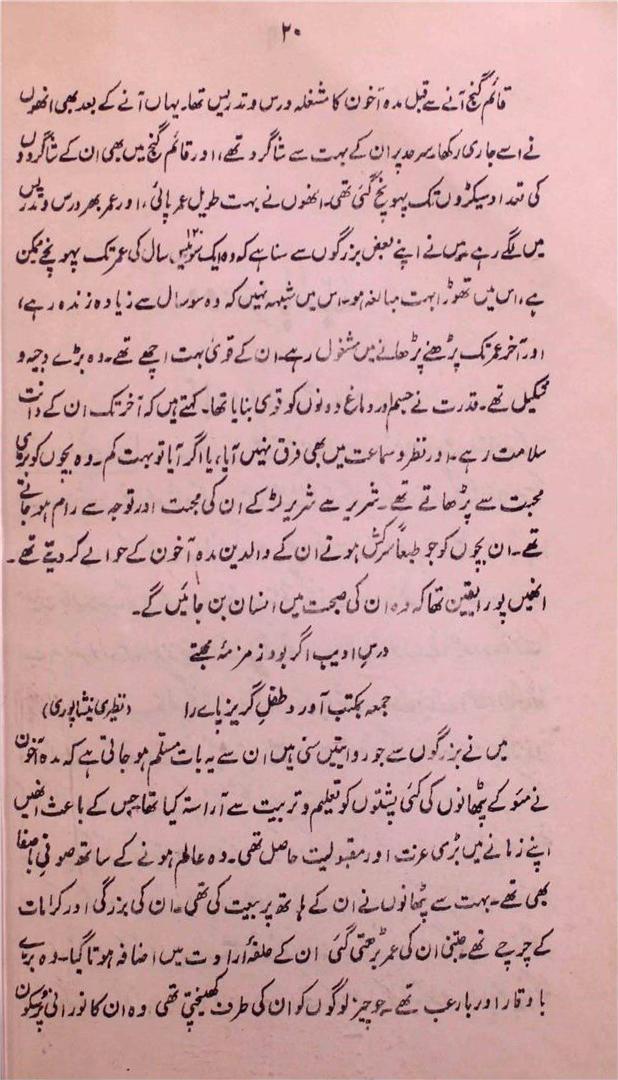 ۲۰
قائم گنج آنے سے قبل مدہ آخون کا مشغلہ درس و تدریس تھا۔ یہاں آنے کے بعد بھی انھوں
نے اسے جاری رکھا۔ سرحد پر ان کے بہت سے شاگرد تھے، اور قائم گنج میں بھی ان کے شاگردوں
کی تعداد سیکڑوں تک پہونچ گئی تھی۔ انھوں نے بہت طویل عمر پائی، اور عمر بھر درس و تدریس
میں لگے رہے۔ میں نے اپنے بعض بزرگوں سے سنا ہے کہ وہ ایک سو بیس ۱۲۰ سال کی عمر تک پہونچے ممکن
ہے، اس میں تھوڑا بہت مبالغہ ہو۔ اس میں شبہہ نہیں کہ وہ سو سال سے زیادہ زندہ رہے،
اور آخر عمر تک پڑھنے پڑھانے میں مشغول رہے۔ ان کے قویٰ بہت اچھے تھے۔ وہ بڑے وجیہ و
شکیل تھے۔ قدرت نے جسم اور دماغ دونوں کو قوی بنایا تھا۔ کہتے ہیں کہ آخر تک ان کے دانت
سلامت رہے۔ اور نظر و سماعت میں بھی فرق نہیں آیا، یا اگر آیا تو بہت کم۔ وہ بچوں کو بڑی
محبت سے پڑھاتے تھے۔ شریر سے شریر لڑکے ان کی محبت اور توجہ سے رام ہو جاتے
تھے۔ ان بچوں کو جو طبعاً سرکش ہوتے ان کے والدین مدہ آخون کے حوالے کر دیتے تھے۔
انھیں پورا یقین تھا کہ وہ ان کی صحبت میں انسان بن جائیں گے۔
درسِ ادیب اگر بود زمزمۂ محبتے
جمعہ بمکتب آورد طفلِ گریز پاے را (نظیری نیشاپوری)
میں نے بزرگوں سے جو روایتیں سنی ہیں ان سے یہ بات مسلّم ہو جاتی ہے کہ مدہ آخون
نے مئو کے پٹھانوں کی کئی پشتوں کو تعلیم و تربیت سے آراستہ کیا تھا جس کے باعث انھیں
اپنے زمانے میں بڑی عزت اور مقبولیت حاصل تھی۔ وہ عالم ہونے کے ساتھ صوفیِ باصفا
بھی تھے۔ بہت سے پٹھانوں نے ان کے ہاتھ پر بیعت کی تھی۔ ان کی بزرگی اور کرامات
کے چرچے تھے۔ جتنی ان کی عمر بڑھتی گئی ان کے حلقۂ ارادت میں اضافہ ہوتا گیا۔ وہ بڑے
باوقار اور بارعب تھے۔ جو چیز لوگوں کو ان کی طرف کھینچتی تھی وہ ان کا نورانی پُرسکون